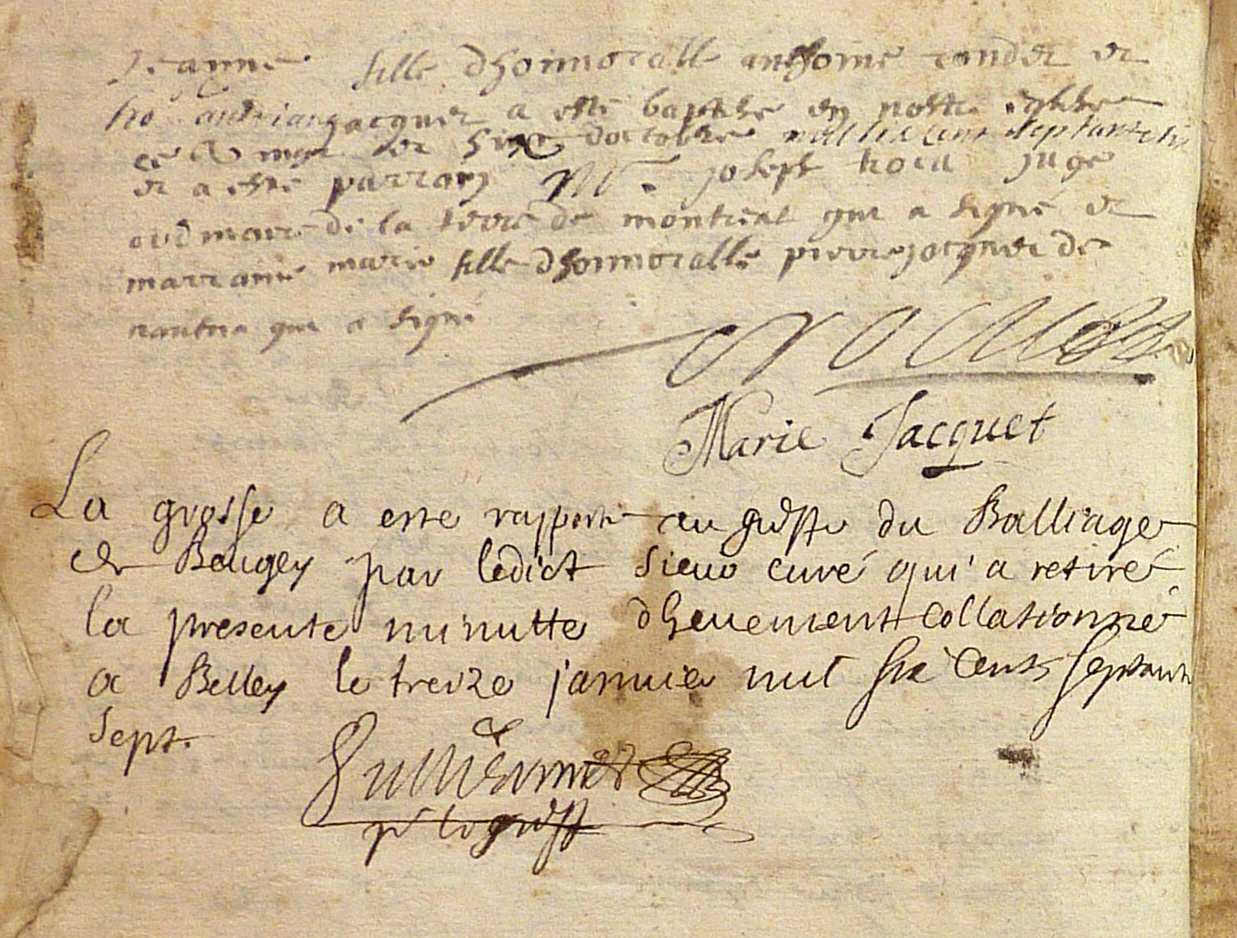 Jeanne fille dhonnorable anthoine render et
jacquet a esté baptisée en nostre eglise
ce vingt et sixe doctobre mil six cent septante six
et a esté parrain Mr. joseph juge
de la terre de montreal qui a signé et
marraine marie fille dhonnorable pierre jacquet de
nantua qui a signé
Marie Jacquet
La grosse a esté rapporté au greffe du Balliage
de Beugey par ledict sieur curé qui a retiré
la presente minutte dheuement collationné
a Belley le treize janvier mil six cents septante
sept.
Guillermet
pr le greff